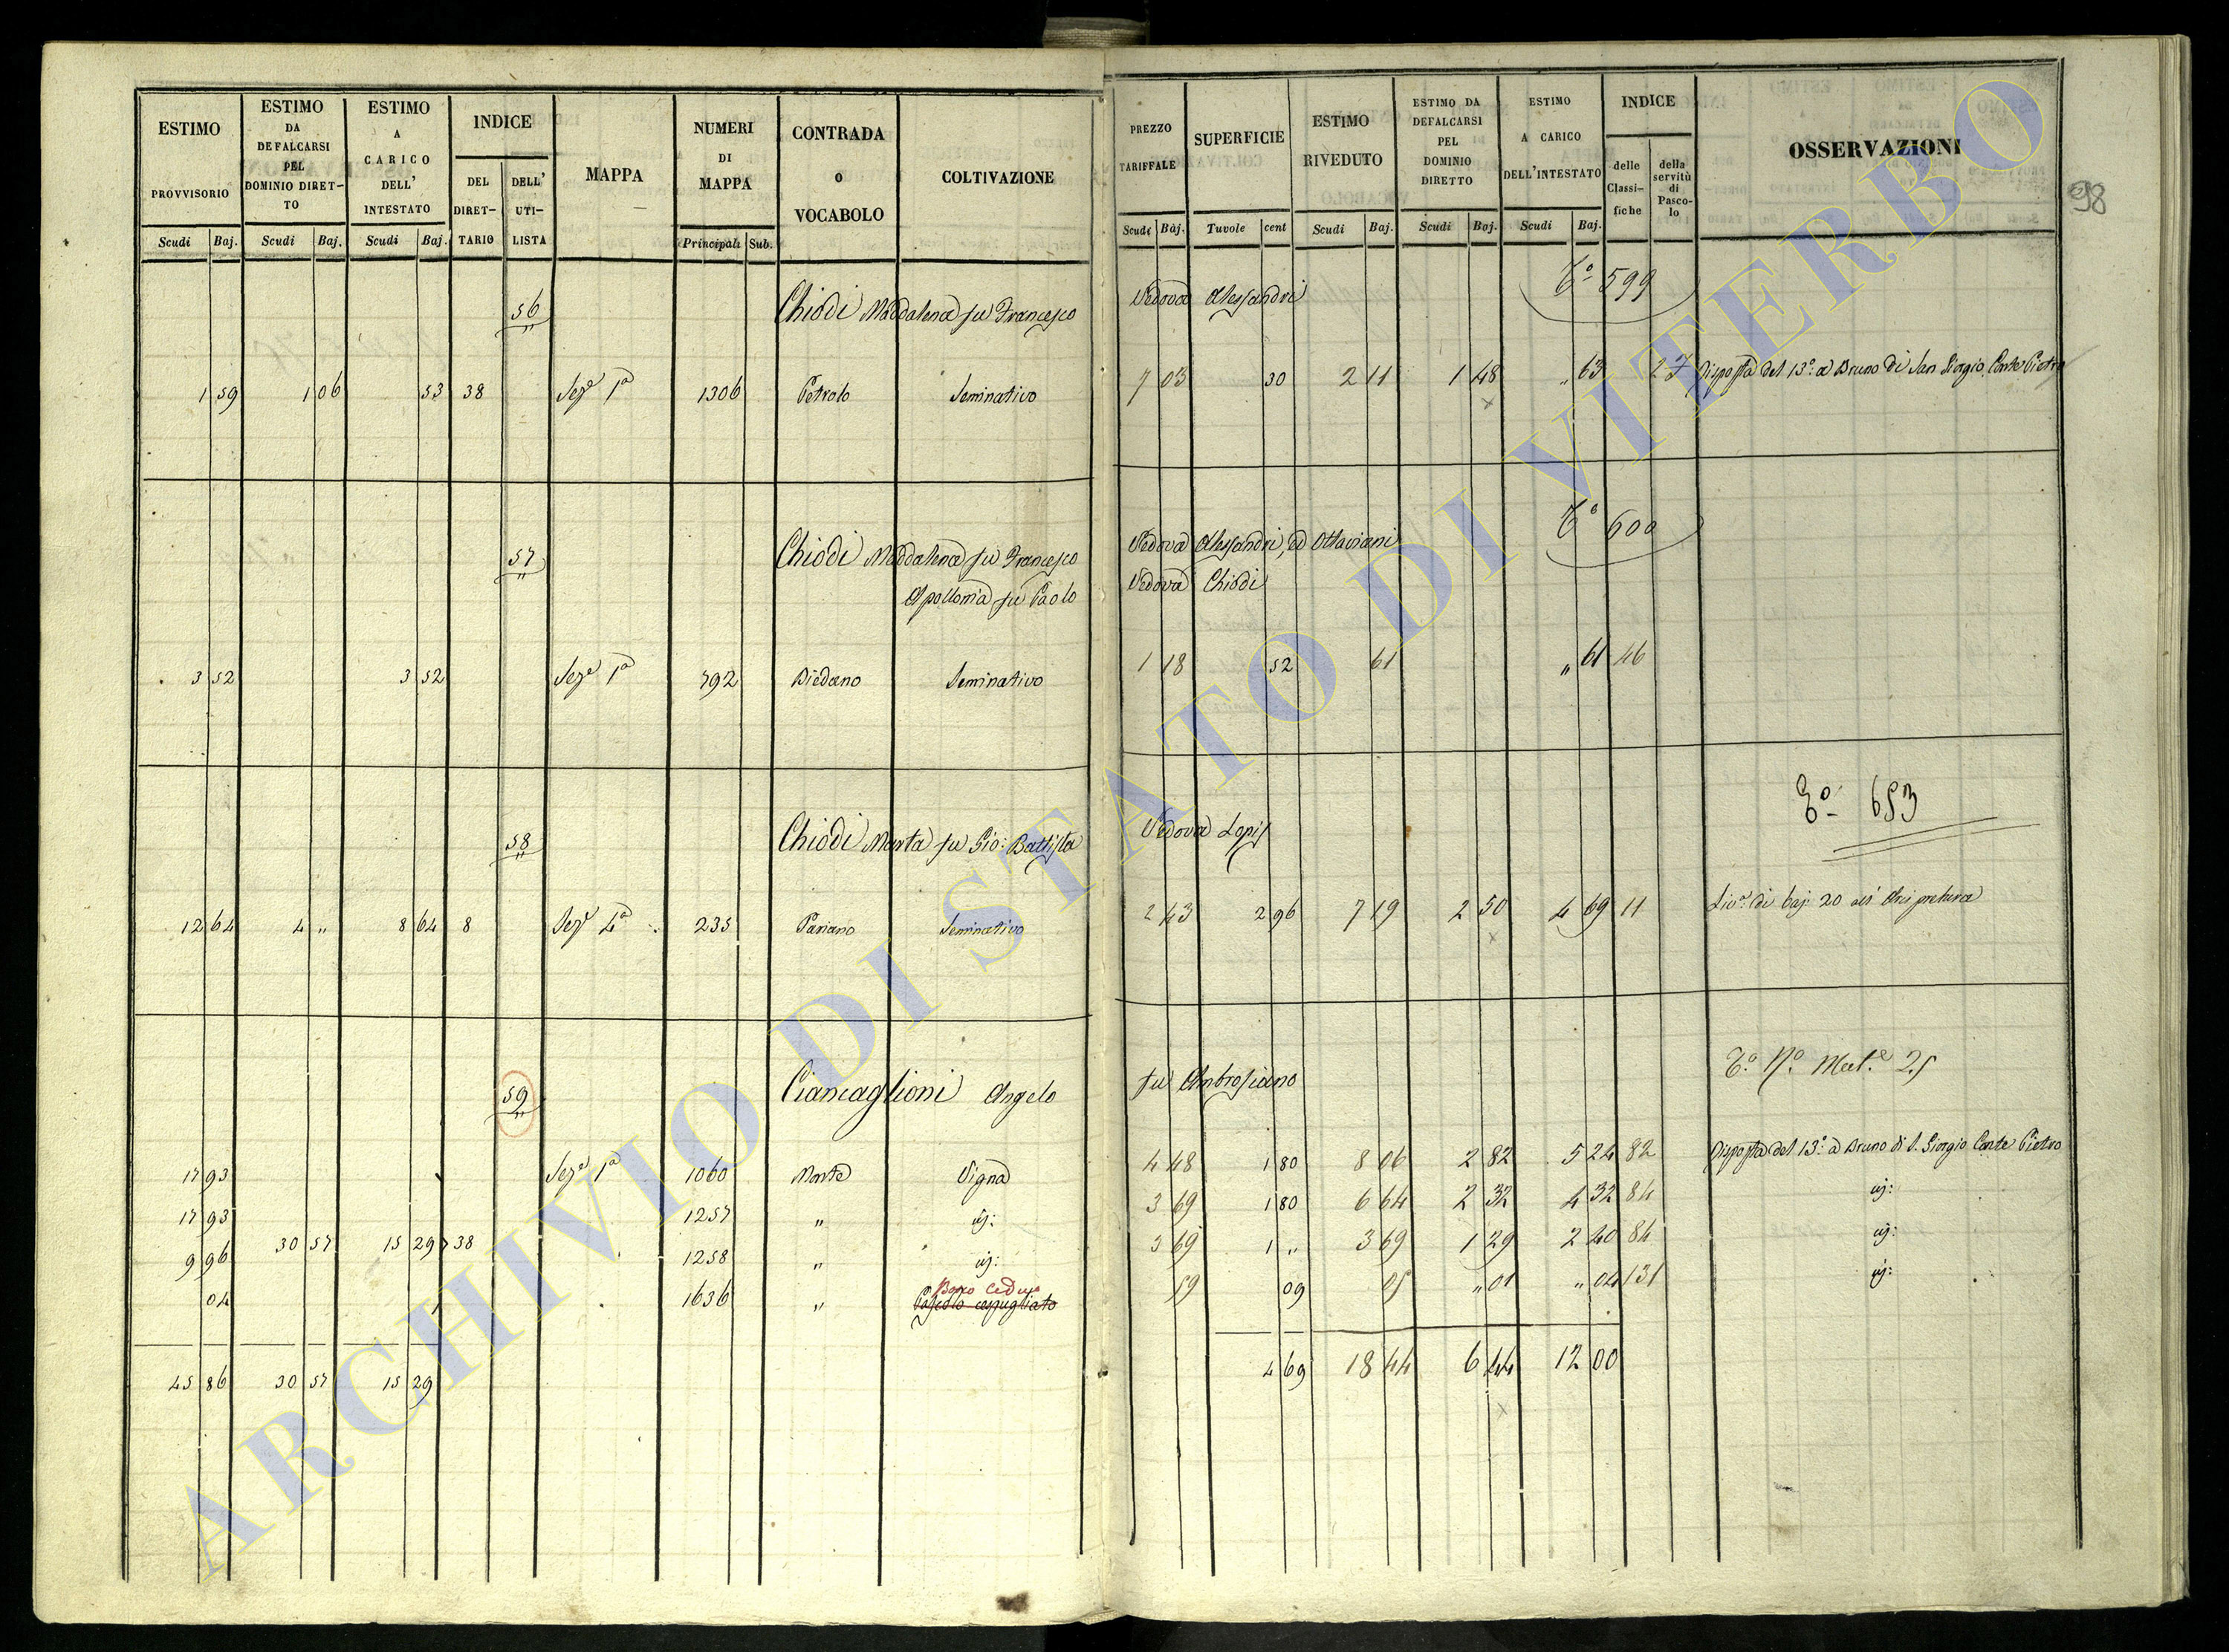 ESTIMO PROVVISORIO Scudi Baj.
ESTIMO DA DEFALCARSI PEL DOMINIO DIRET-TO Scudi Baj.
ESTIMO A CARICO DELL' INTESTATO Scudi Baj.
INDICE DEL DIRET-TARIO DELL' UTI-LISTA
MAPPA
NUMERI DI MAPPA Principali Sub.
CONTRADA O VOCABOLO
COLTIVAZIONE
PREZZO TARIFFALE Scudi Baj.
SUPERFICIE Tavole cent
ESTIMO RIVEDUTO Scudi Baj.
ESTIMO DA DEFALCARSI PEL DOMINIO DIRETTO Scudi Baj.
ESTIMO A CARICO DELL'INTESTATO Scudi Baj.
INDICE delle Classi-fiche della servitù di Pasco-lo
OSSERVAZIONI
98
56 Chiodi Maddalena fu Francesco Vedova Alessandri Tº 599
1 59 1 06 53 38 Sezе 1ª 1306 Petrolo Seminativo 7 03 30 2 11 1 48 „ 63 27 Disposta del 13º a Bruno di San Giorgio Conte Pietro
57 Chiodi Maddalena fu Francesco Vedova Alessandri, ed Ottaviani Tº 600
Apollonia fu Paolo Vedova Chiodi
3 52 3 52 Seze 1ª 792 Biedano Seminativo 1 18 52 61 „ 61 46
58 Chiodi Marta fu Gio: Battista Vedova Lopis Tº 653
12 64 4 „ 8 64 8 Seze 4ª 235 Pariano Seminativo 2 43 2 96 7 19 2 50 4 69 11 Livº di baj: 20 all' Arcipretura
59 Ciancaglioni Angelo fu Ambrosiano Tº Nº Mate 25
17 93 Seze 1ª 1060 Monte Vigna 4 48 1 80 8 06 2 82 5 24 82 Disposta del 13º a Bruno di S. Giorgio Conte Pietro
17 93 1257 „ iij: 3 69 1 80 6 64 2 32 4 32 84 iij:
9 96 30 57 15 29 38 1258 „ iij: 3 69 1 „ 3 69 1 29 2 40 84 iij:
04 1636 „ Bosco Ceduo Pascolo cespugliato 59 09 05 „ 01 „ 04 131 iij:
45 86 30 57 15 29 4 69 18 44 6 44 12 00
ARCHIVIO DI STATO DI VITERBO